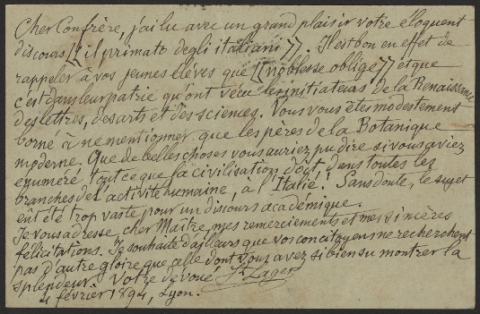 Cher Confrère, j'ai lu avec un grand plaisir votre éloquent
discours «il primato degli italiani». Il est bon en effet de
rappeler à vos jeunes élèves que «noblesse oblige» et que
c'est dans leur patrie qu'ont vécu les initiateurs de la Renaissance
des lettres, des arts et des sciences. Vous vous êtes modestement
borné à ne mentionner que les pères de la Botanique
moderne. Que de belles choses vous auriez pu dire si vous aviez
énuméré tout ce que la civilisation doit, dans toutes les
branches de l'activité humaine, à l'Italie! Sans doute, le sujet
eût été trop vaste pour un discours académique.
Je vous adresse, cher Maître, mes remerciements et mes sincères
félicitations. Je souhaite d'ailleurs que vos concitoyens ne recherchent
pas d'autre gloire que celle dont vous avez si bien su montrer la
splendeur. Votre dévoué
4 février 1894, Lyon.